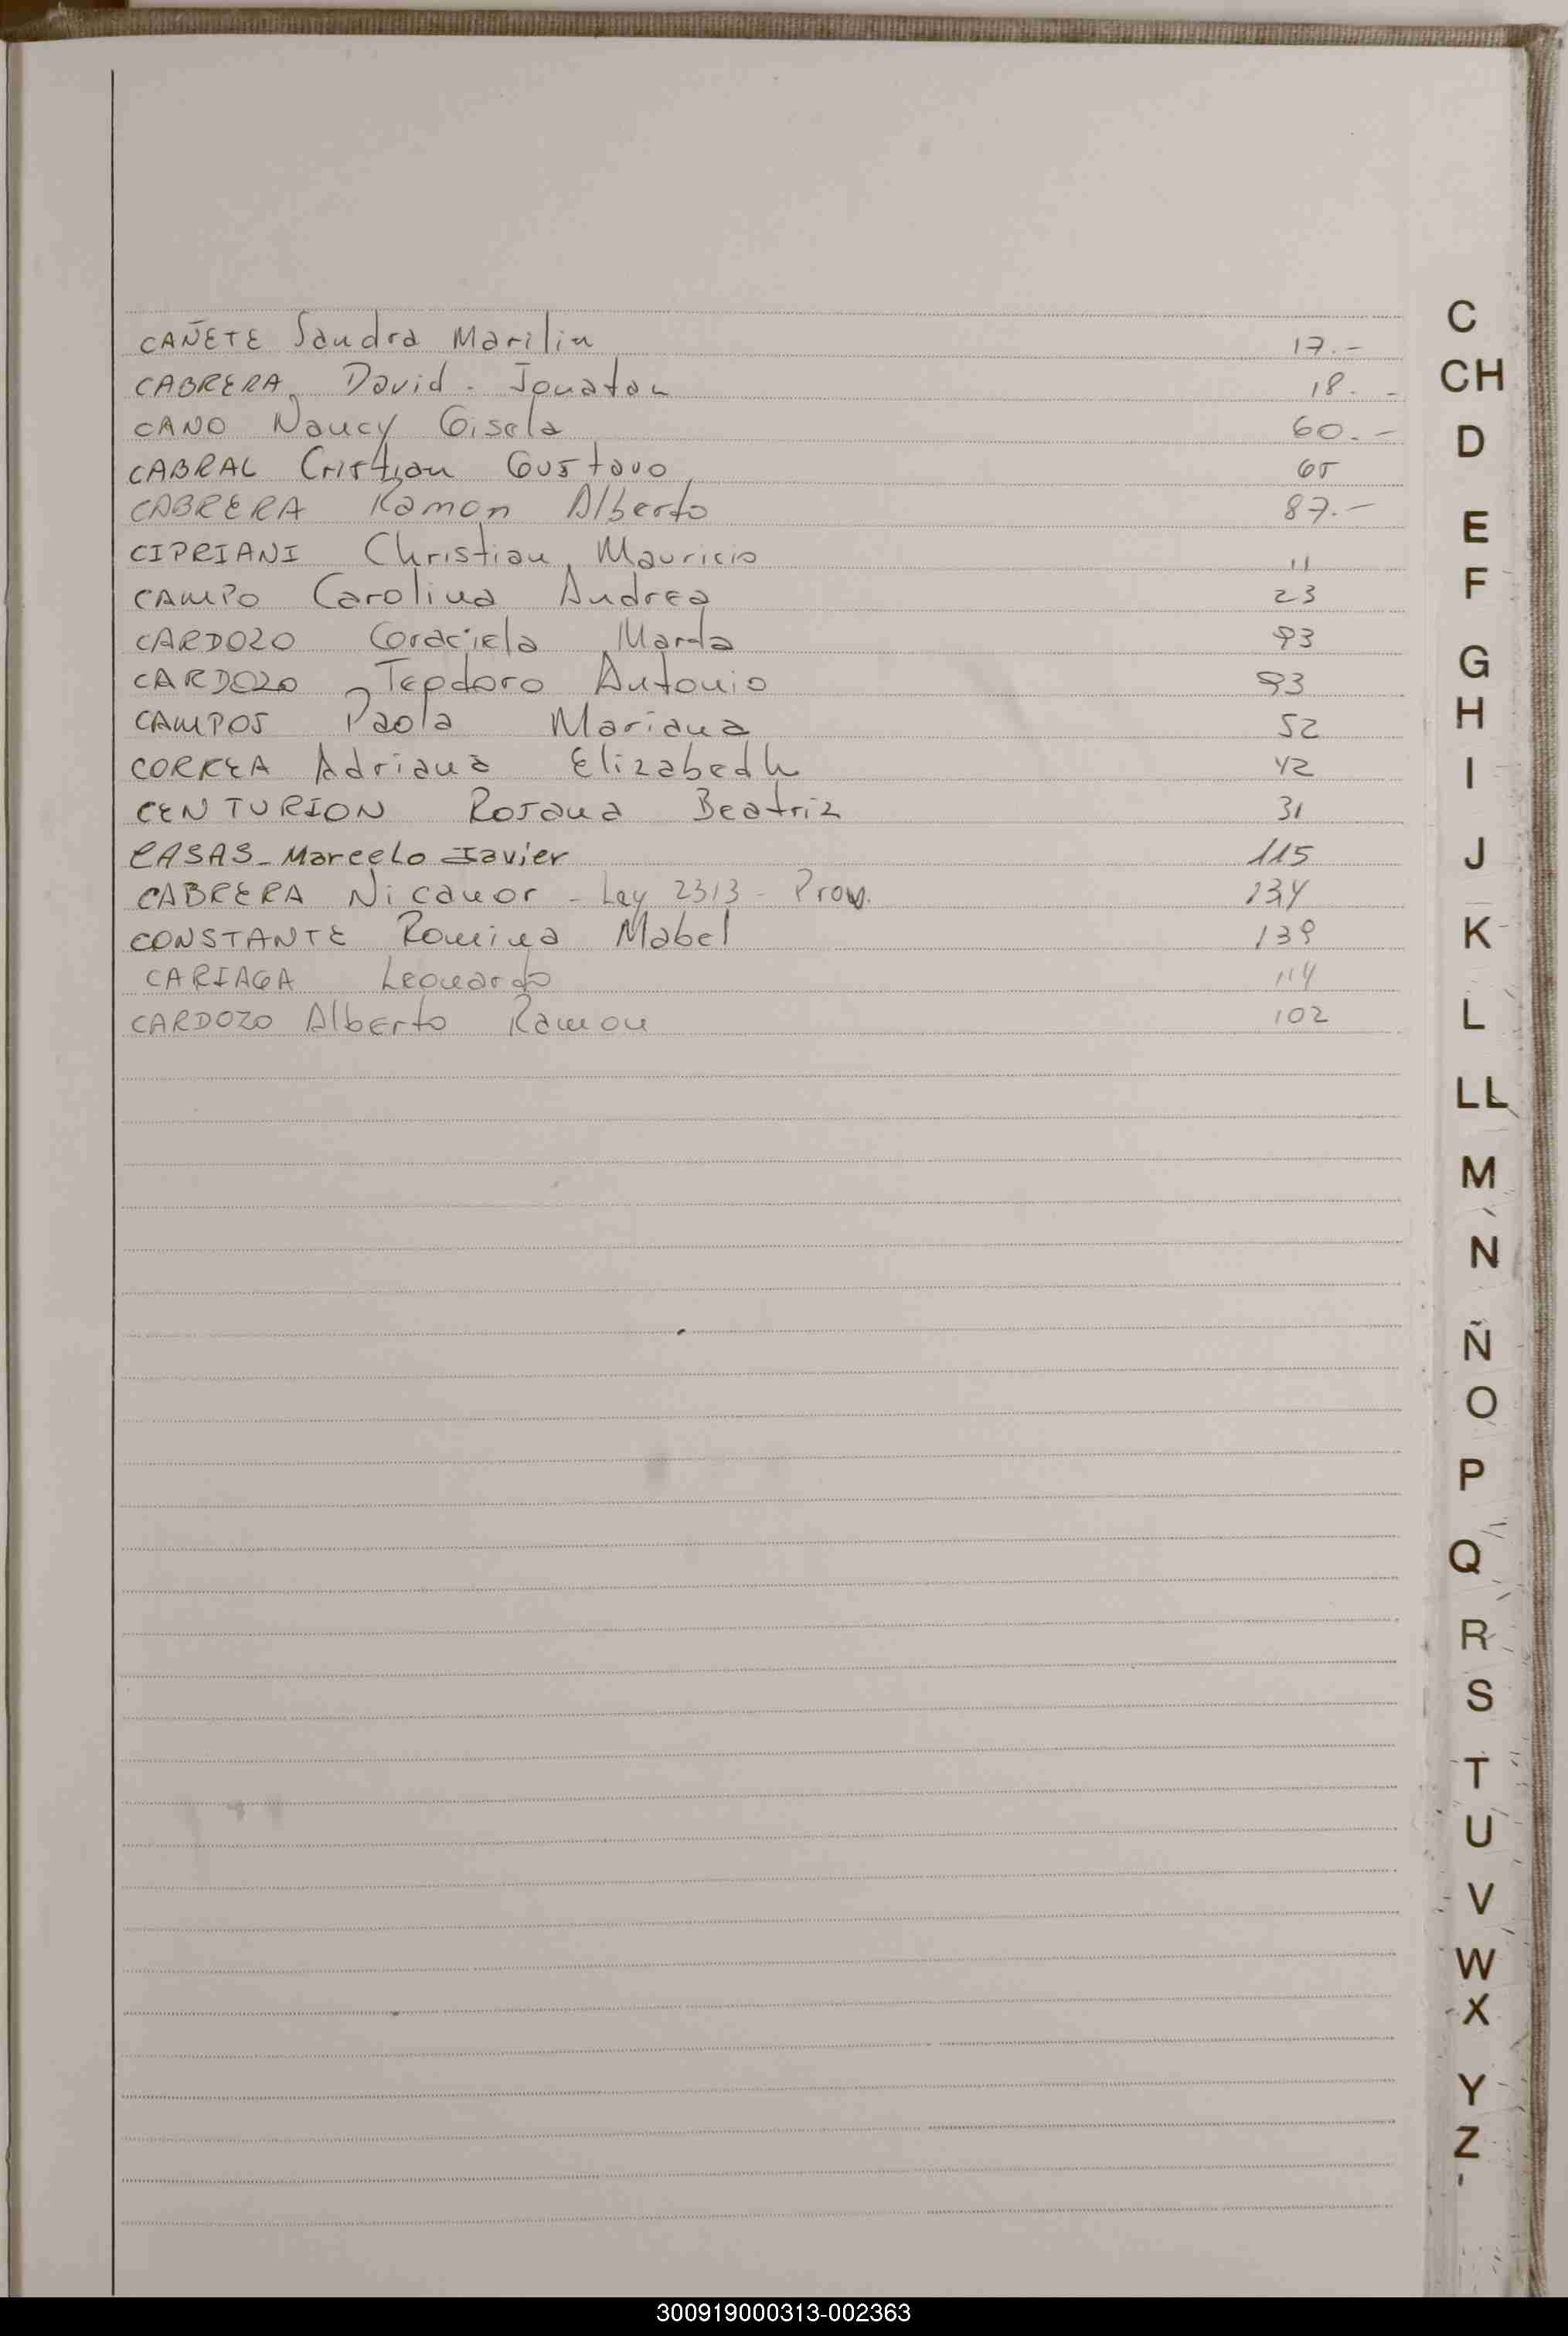 CAÑETE Sandra Marilin 17.-
CABRERA, David - Jonatan 18. -
CANO Nancy Gisela 60.-
CABRAL Cristian Gustavo 65
CABRERA Ramon Alberto 87.-
CIPRIANI Christian Mauricio 11
CAMPO Carolina Andrea 23
CARDOZO Graciela Marta 93
CARDOZO Teodoro Antonio 93
CAMPOS Paola Mariana 52
CORREA Adriana Elizabedh 42
CENTURION Rosana Beatriz 31
CASAS - Marcelo Javier 115
CABRERA Nicanor - Ley 2313 - Prov. 134
CONSTANTE Romina Mabel 139
CARIAGA Leonardo 114
CARDOZO Alberto Ramon 102
C
CH
D
E
F
G
H
I
J
K
L
LL
M
N
Ñ
O
P
Q
R
S
T
U
V
W
X
Y
Z
300919000313-002363